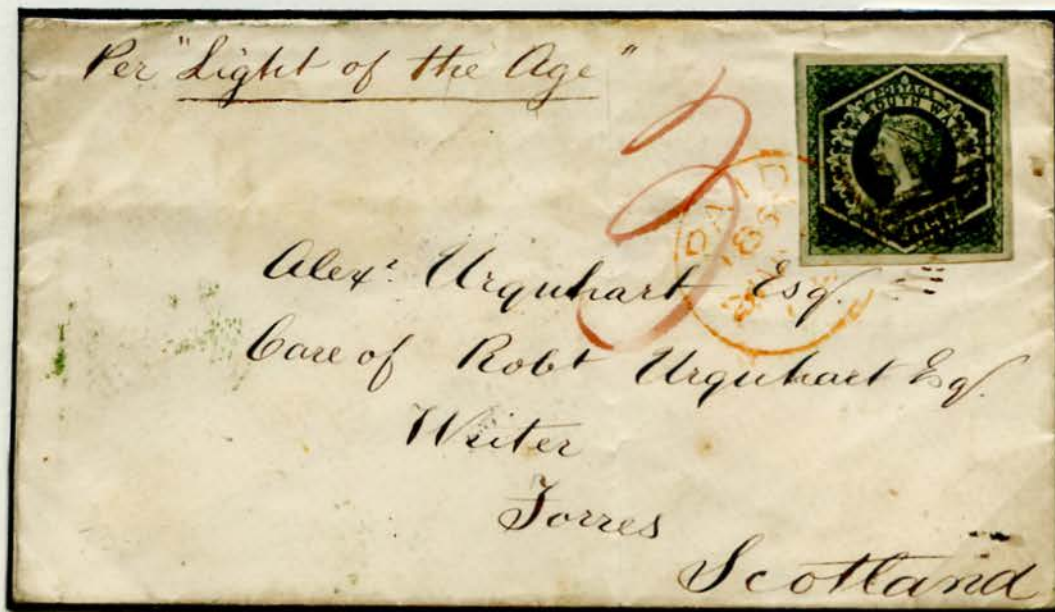 Per "Light of the Age"
POSTAGE
SOUTH WA
3
PAID
Alexr. Urquhart Esq.
Care of Robt Urquhart Esq.
Writer
Forres
Scotland